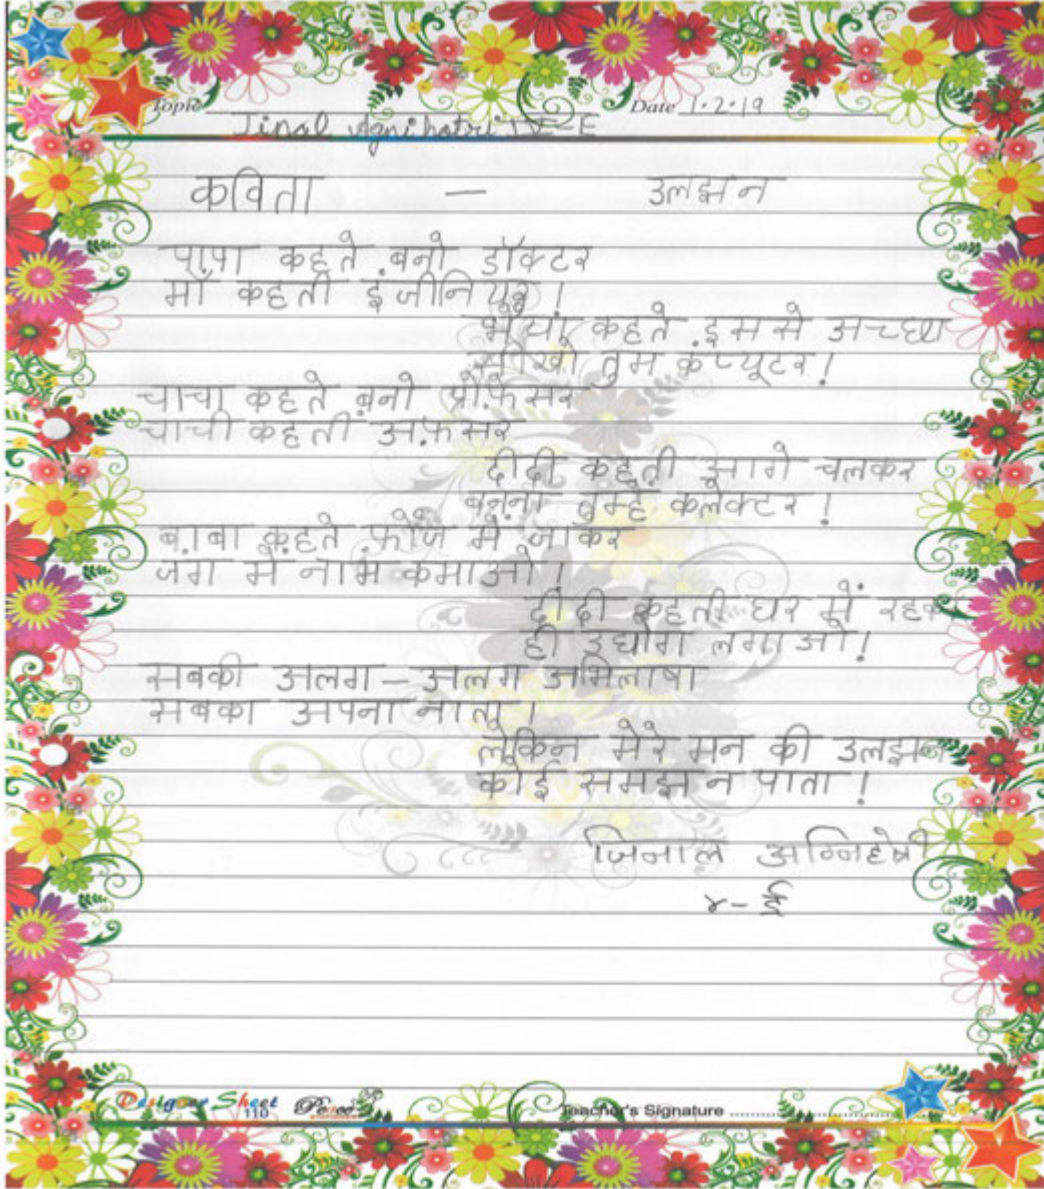 Topic
Date 1.2.19
Jinal Agnihotri IV-E
कविता — उलझन
पापा कहते बनो डॉक्टर
माँ कहती इंजीनियर!
भैया कहते इससे अच्छा
सीखो तुम कंप्यूटर!
चाचा कहते बनो प्रोफ़ेसर
चाची कहती अफ़सर
दीदी कहती आगे चलकर
बनना तुम्हें कलेक्टर!
बाबा कहते फ़ौज में जाकर
जग में नाम कमाओ!
दीदी कहती घर में रहकर
ही उद्योग लगाओ!
सबकी अलग-अलग अभिलाषा
सबका अपना नाता!
लेकिन मेरे मन की उलझन
कोई समझ न पाता!
जिनाल अग्निहोत्री
४-ई
Designer Sheet
110
Teacher's Signature